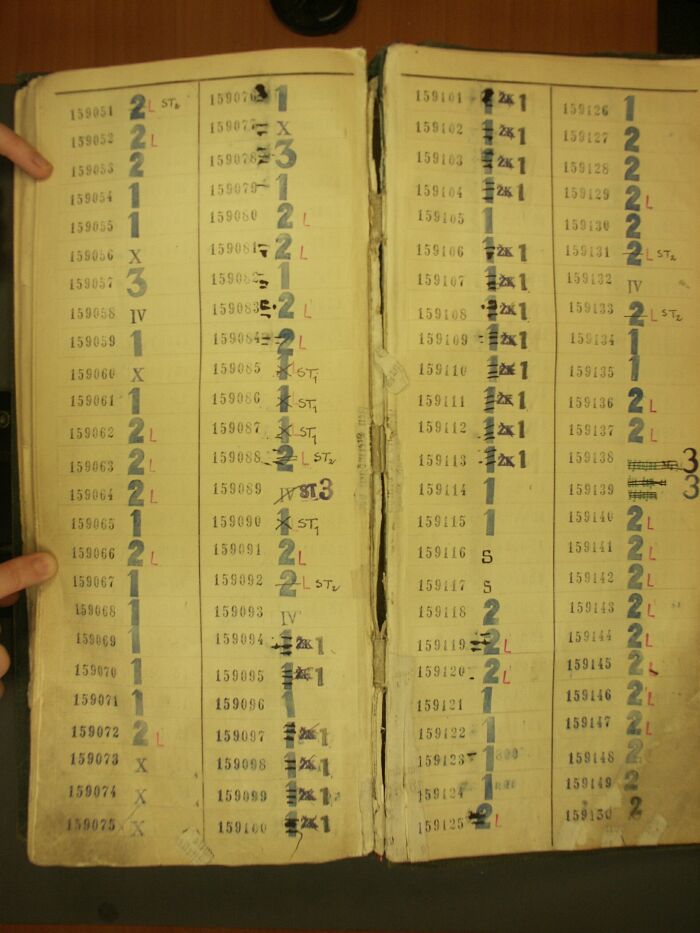 159051 2 L ST2
159052 2 L
159053 2
159054 1
159055 1
159056 X
159057 3
159058 IV
159059 1
159060 X
159061 1
159062 2 L
159063 2 L
159064 2 L
159065 1
159066 2 L
159067 1
159068 1
159069 1
159070 1
159071 1
159072 2 L
159073 X
159074 X
159075 X
159076 1
159077 X
159078 3
159079 1
159080 2 L
159081 2 L
159082 1
159083 2 L
159084 2 L
159085 1 ST1
159086 1 ST1
159087 1 ST1
159088 2 L ST2
159089 IV ST 3
159090 1 ST1
159091 2 L
159092 2 L ST2
159093 IV
159094 1 2K 1
159095 1 2K 1
159096 1
159097 1 2K 1
159098 1 2K 1
159099 1 2K 1
159100 1 2K 1
159101 1 2K 1
159102 1 2K 1
159103 1 2K 1
159104 1 2K 1
159105 1
159106 1 2K 1
159107 1 2K 1
159108 1 2K 1
159109 1 2K 1
159110 1 2K 1
159111 1 2K 1
159112 1 2K 1
159113 1 2K 1
159114 1
159115 1
159116 S
159117 S
159118 2
159119 2 L
159120 2 L
159121 1
159122 1
159123 1
159124 1
159125 2 L
159126 1
159127 2
159128 2
159129 2 L
159130 2
159131 2 L ST2
159132 IV
159133 2 L ST2
159134 1
159135 1
159136 2 L
159137 2 L
159138 3
159139 3
159140 2 L
159141 2 L
159142 2 L
159143 2 L
159144 2 L
159145 2 L
159146 2 L
159147 2 L
159148 2
159149 2
159150 2